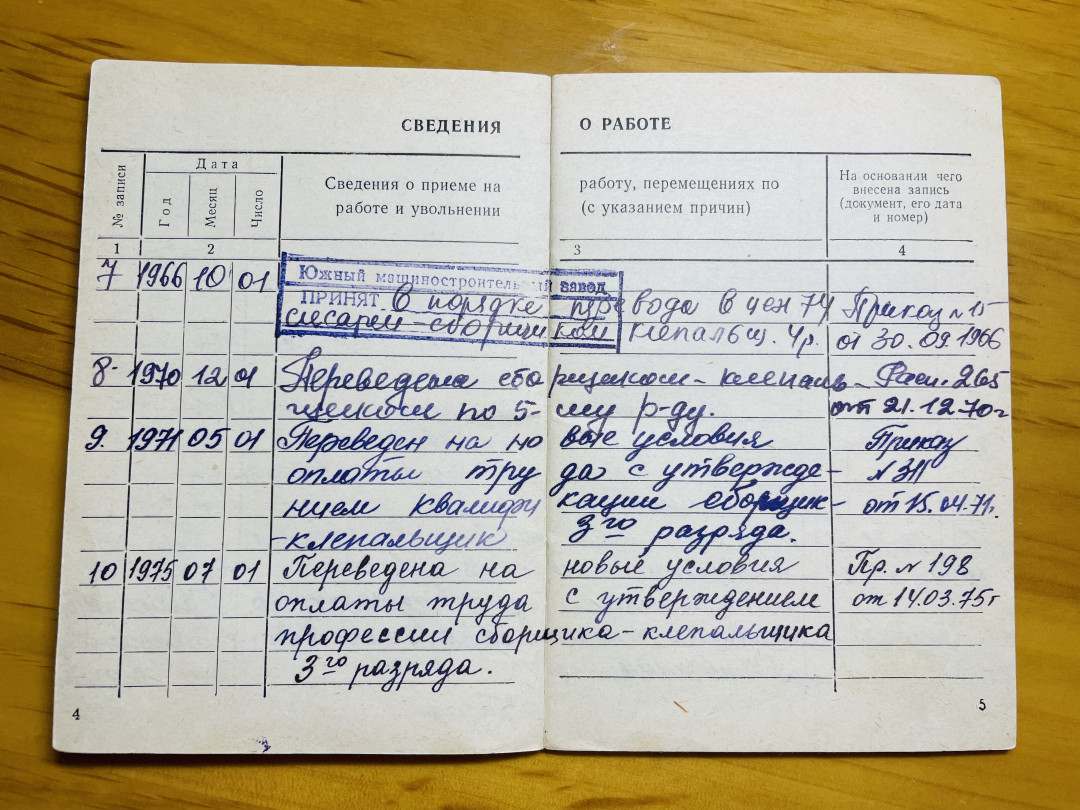 СВЕДЕНИЯ О РАБОТЕ
№ записи
Дата
Год
Месяц
Число
Сведения о приеме на работу, перемещениях по
работе и увольнении (с указанием причин)
На основании чего
внесена запись
(документ, его дата
и номер)
1 2 3 4
7 1966 10 01 Южный машиностроительный завод
ПРИНЯТ В порядке перевода в цех 74 Приказ № 15
слесарем-сборщиком клепальщ. 4р. от 30.09.1966
8. 1970 12 01 Переведена сборщиком-клепаль- Расп. 265
щиком по 5-му р-ду. от 21.12.70г
9. 1971 05 01 Переведен на новые условия Приказ
оплаты труда с утвержде- № 311
нием квалификации сборщик- от 15.04.71г.
-клепальщик 3го разряда.
10 1975 07 01 Переведена на новые условия Пр. № 198
оплаты труда с утверждением от 14.03.75г
профессии сборщика-клепальщика
3го разряда.
4 5